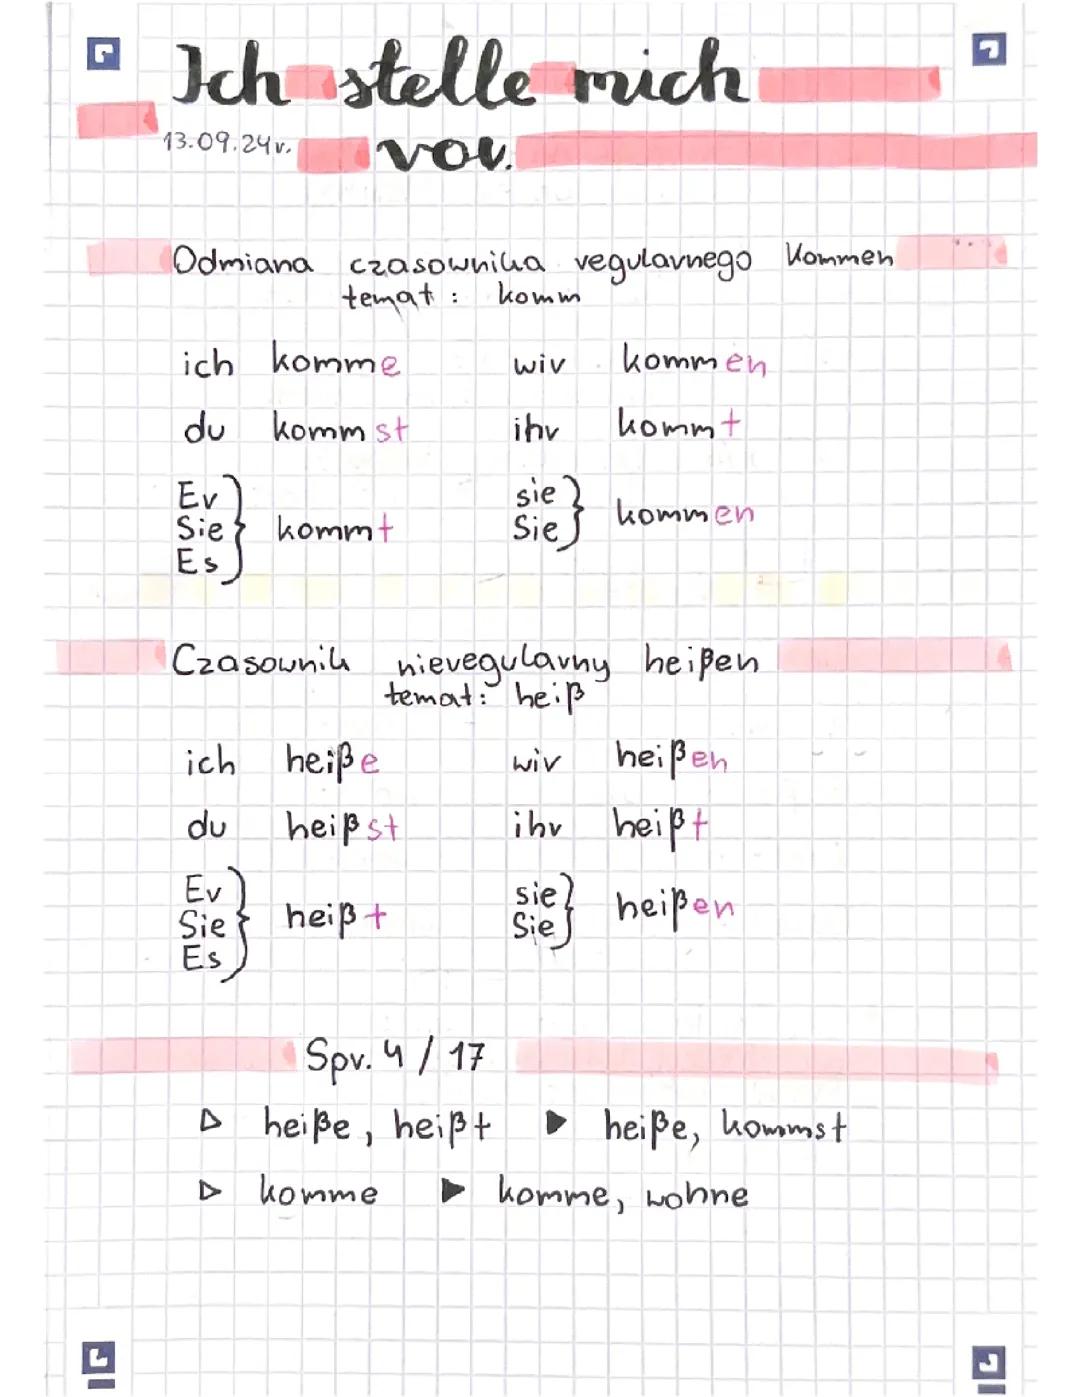 Ich stelle mich
13.09.24r. vor.
Odmiana czasownika regularnego kommen
temat: komm
ich komme wir kommen
du kommst ihr kommt
Er
Sie } kommt
Es
sie
Sie } kommen
Czasownik nieregularny heißen
temat: heiß
ich heiße wir heißen
du heißst ihr heißt
Er
Sie } heißt
Es
sie
Sie } heißen
Spr. 4/17
▷ heiße, heißt ▶ heiße, kommst
▷ komme ▶ komme, wohne